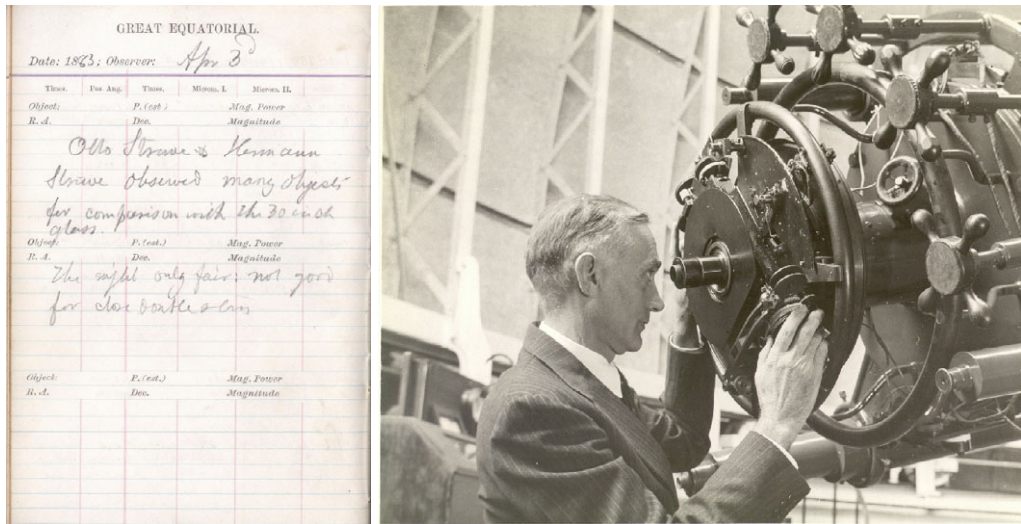 GREAT EQUATORIAL.
Date: 1883; Observer: Apr 3d
Times. Pos Ang. Times. Microm. I. Microm. II.
Object: P. (est.) Mag. Power
R. A. Dec. Magnitude
Otto Struve & Hermann
Struve observed many objects
for comparison with the 30 inch
glass.
Object: P. (est.) Mag. Power
R. A. Dec. Magnitude
The night only fair; not good
for close double stars
Object: P. (est.) Mag. Power
R. A. Dec. Magnitude